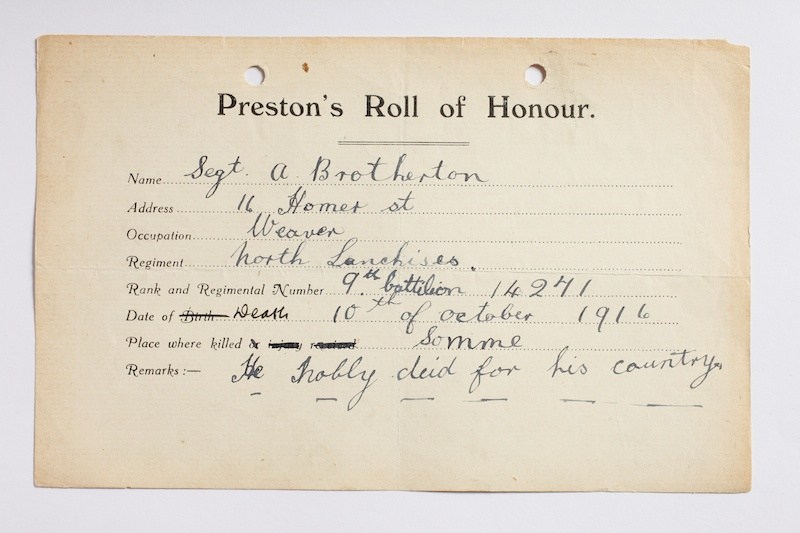 Preston's Roll of Honour.
Name Segt. A Brotherton
Address 16 Homer st
Occupation Weaver
Regiment North Lanchises.
Rank and Regimental Number 9th battilion 14271
Date of Birth Death 10th of october 1916
Place where killed injury received Somme
Remarks:— He nobly deid for his country